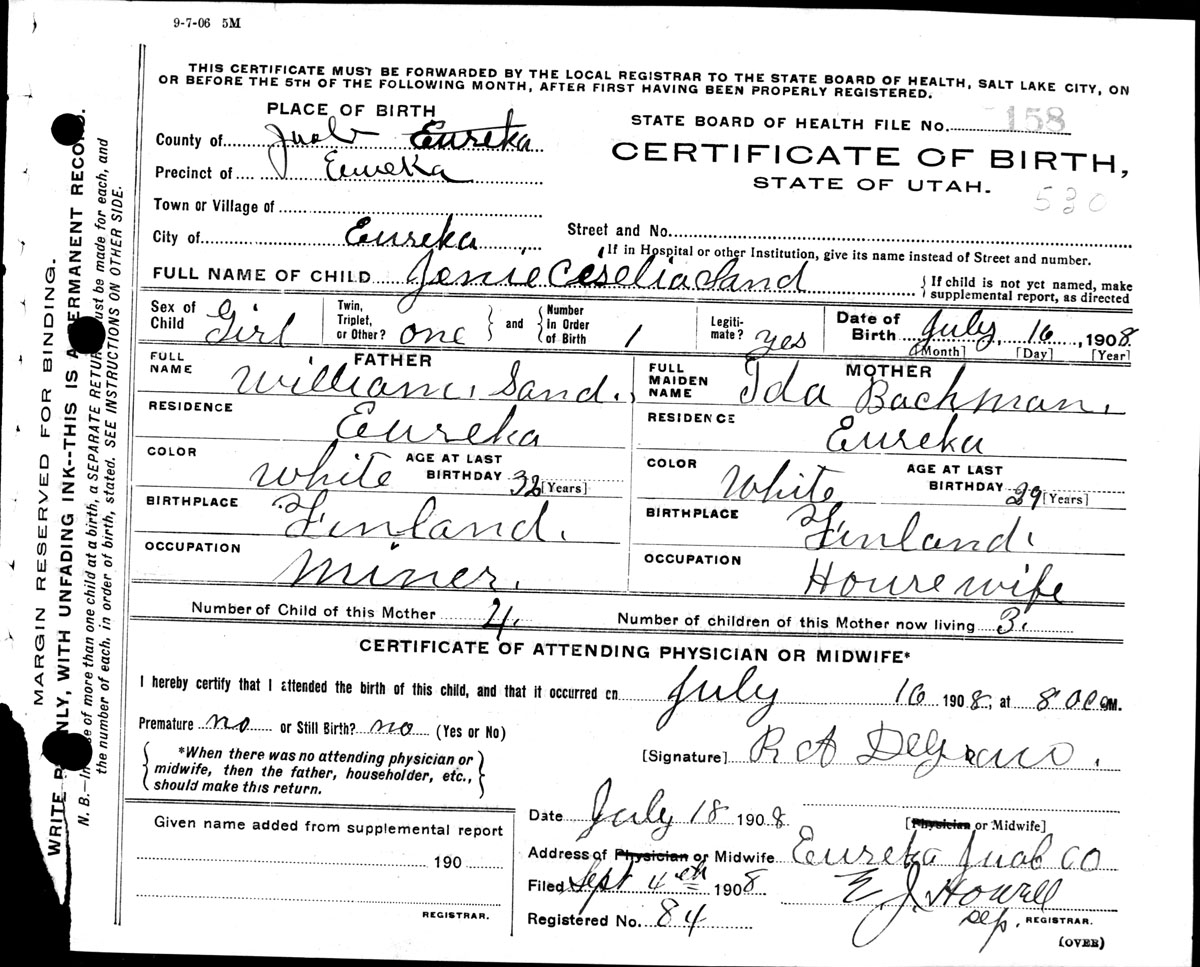 9-7-06 5M
THIS CERTIFICATE MUST BE FORWARDED BY THE LOCAL REGISTRAR TO THE STATE BOARD OF HEALTH, SALT LAKE CITY, ON
OR BEFORE THE 5TH OF THE FOLLOWING MONTH, AFTER FIRST HAVING BEEN PROPERLY REGISTERED.
PLACE OF BIRTH
STATE BOARD OF HEALTH FILE No. 158
County of Juab Eureka
CERTIFICATE OF BIRTH,
Precinct of Eureka
STATE OF UTAH.
530
Town or Village of
City of Eureka
Street and No.
If in Hospital or other Institution, give its name instead of Street and number.
FULL NAME OF CHILD Jenie Ciselia Sand
If child is not yet named, make
supplemental report, as directed
Sex of Child Girl
Twin, Triplet, or Other? one
and
Number In Order of Birth 1
Legiti-mate? yes
Date of Birth July, 16, 1908
[Month] [Day] [Year]
FATHER
FULL NAME William Sand.
MOTHER
FULL MAIDEN NAME Ida Bachman.
RESIDENCE Eureka
RESIDENCE Eureka
COLOR White AGE AT LAST BIRTHDAY 32 [Years]
COLOR White AGE AT LAST BIRTHDAY 29 [Years]
BIRTHPLACE Finland.
BIRTHPLACE Finland.
OCCUPATION Miner.
OCCUPATION Housewife
Number of Child of this Mother 4.
Number of children of this Mother now living 3.
CERTIFICATE OF ATTENDING PHYSICIAN OR MIDWIFE*
I hereby certify that I attended the birth of this child, and that it occurred on July 16 1908, at 8 M.
Premature no or Still Birth? no (Yes or No)
*When there was no attending physician or
midwife, then the father, householder, etc.,
should make this return.
[Signature] R A
Date July 18 1908
[Physician or Midwife]
Given name added from supplemental report
190
REGISTRAR.
Address of Physician or Midwife Eureka Juab Co
Filed Sept 4th 1908
E J Howell
Dep. REGISTRAR.
Registered No. 84
(OVER)
MARGIN RESERVED FOR BINDING.
WRITE PLAINLY, WITH UNFADING INK--THIS IS A PERMANENT RECORD.
N. B.—In case of more than one child at a birth, a SEPARATE RETURN must be made for each, and
the number of each, in order of birth, stated. SEE INSTRUCTIONS ON OTHER SIDE.